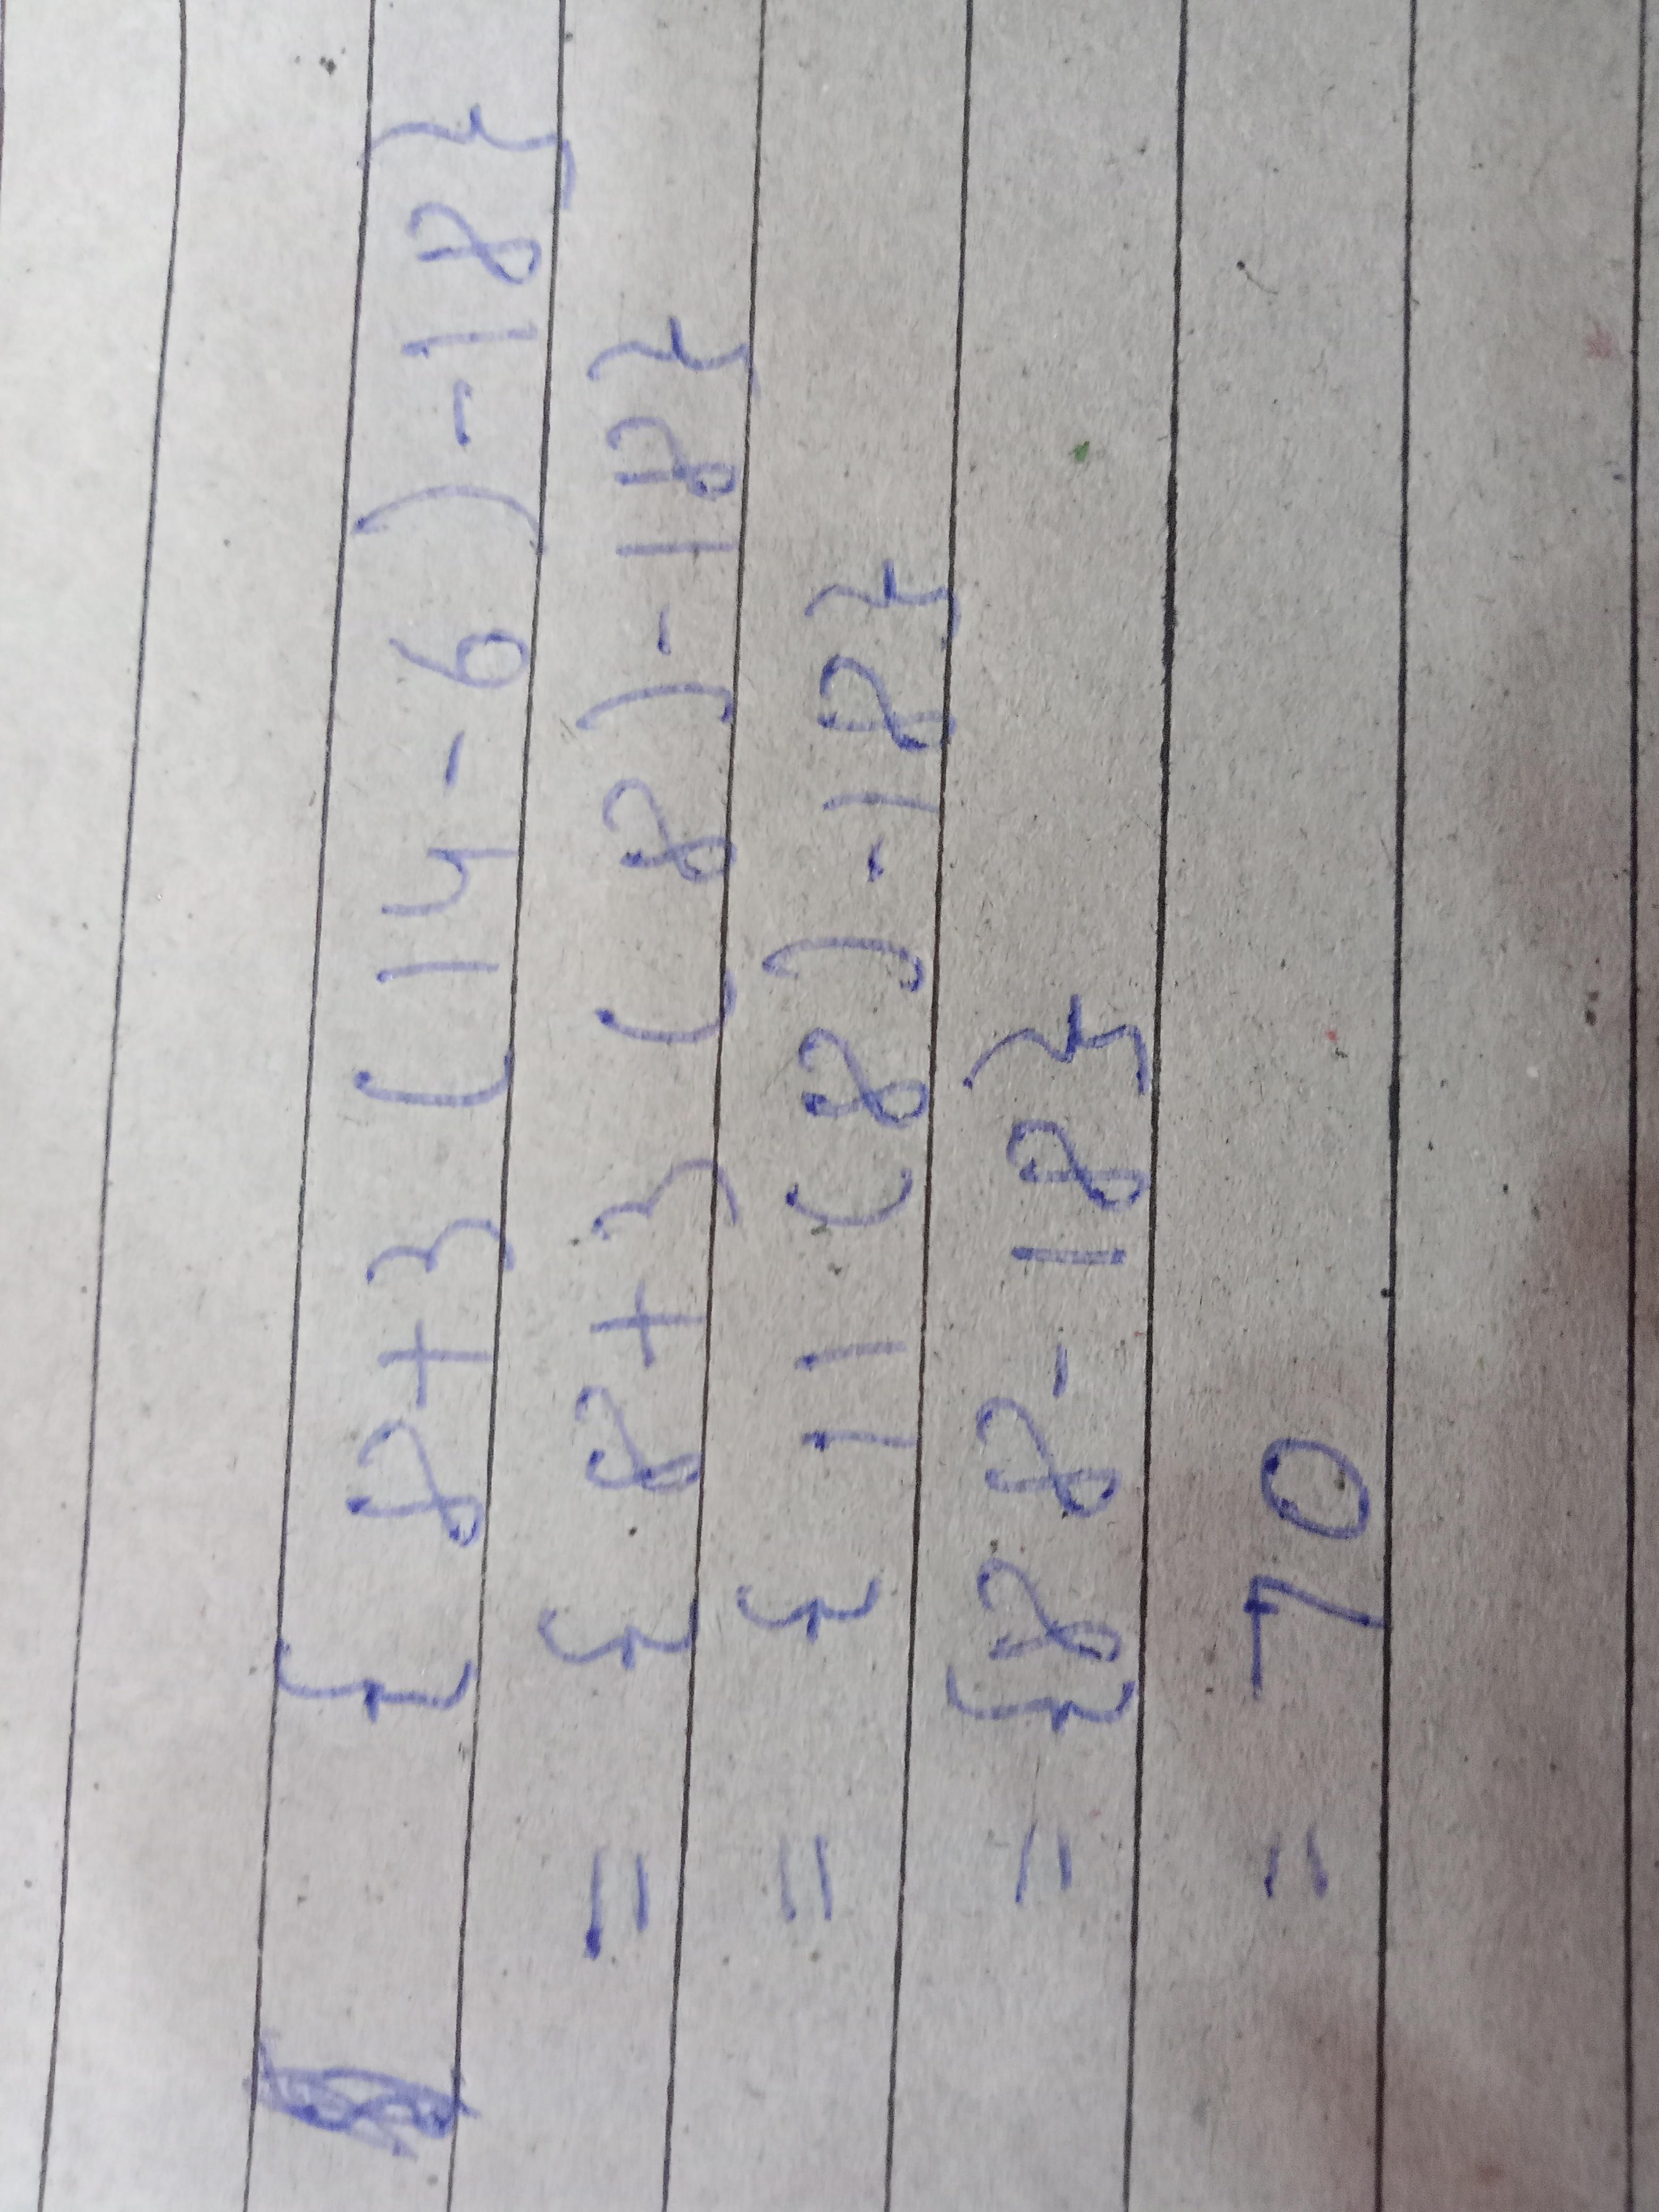 { 8+3 (14-6) -18}
= { 8+3 (8) -18}
= { 11 (8) -18}
= {88-18}
= 70